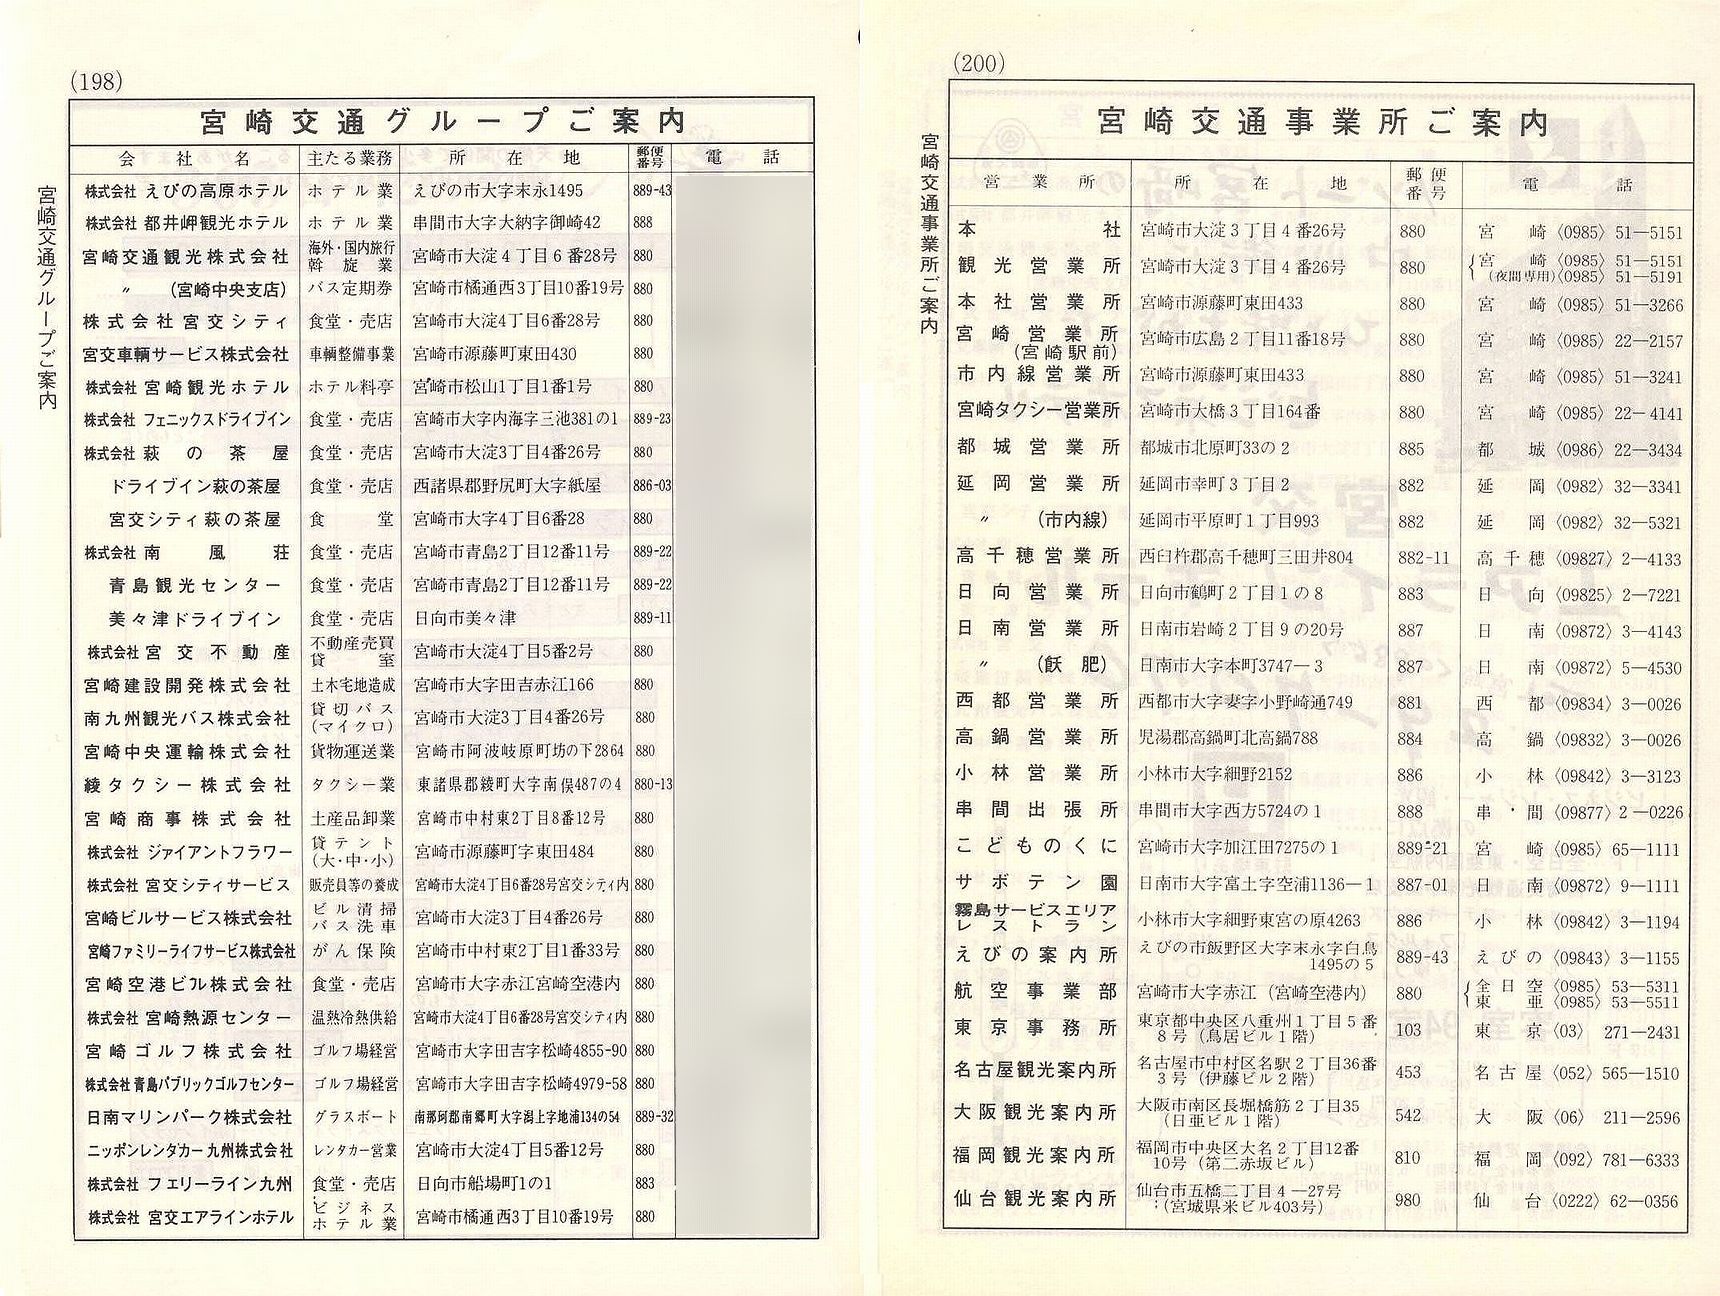 (198)
宮崎交通グループご案内
宮崎交通グループご案内
会社名 主たる業務 所在地 郵便番号 電話
株式会社 えびの高原ホテル ホテル業 えびの市大字末永1495 889-43
株式会社 都井岬観光ホテル ホテル業 串間市大字大納字御崎42 888
宮崎交通観光株式会社 海外・国内旅行斡旋業 宮崎市大淀4丁目6番28号 880
〃 (宮崎中央支店) バス定期券 宮崎市橘通西3丁目10番19号 880
株式会社宮交シティ 食堂・売店 宮崎市大淀4丁目6番28号 880
宮交車輌サービス株式会社 車輌整備事業 宮崎市源藤町東田430 880
株式会社 宮崎観光ホテル ホテル料亭 宮崎市松山1丁目1番1号 880
株式会社 フェニックスドライブイン 食堂・売店 宮崎市大字内海字三池381の1 889-23
株式会社 萩の茶屋 食堂・売店 宮崎市大淀3丁目4番26号 880
ドライブイン萩の茶屋 食堂・売店 西諸県郡野尻町大字紙屋 886-03
宮交シティ萩の茶屋 食堂 宮崎市大字4丁目6番28 880
株式会社 南風荘 食堂・売店 宮崎市青島2丁目12番11号 889-22
青島観光センター 食堂・売店 宮崎市青島2丁目12番11号 889-22
美々津ドライブイン 食堂・売店 日向市美々津 889-11
株式会社 宮交不動産 不動産売買貸室 宮崎市大淀4丁目5番2号 880
宮崎建設開発株式会社 土木宅地造成 宮崎市大字田吉赤江166 880
南九州観光バス株式会社 貸切バス(マイクロ) 宮崎市大淀3丁目4番26号 880
宮崎中央運輸株式会社 貨物運送業 宮崎市阿波岐原町坊の下2864 880
綾タクシー株式会社 タクシー業 東諸県郡綾町大字南俣487の4 880-13
宮崎商事株式会社 土産品卸業 宮崎市中村東2丁目8番12号 880
株式会社 ジァイアントフラワー 貸テント(大・中・小) 宮崎市源藤町字東田484 880
株式会社 宮交シティサービス 販売員等の養成 宮崎市大淀4丁目6番28号宮交シティ内 880
宮崎ビルサービス株式会社 ビル清掃バス洗車 宮崎市大淀3丁目4番26号 880
宮崎ファミリーライフサービス株式会社 がん保険 宮崎市中村東2丁目1番33号 880
宮崎空港ビル株式会社 食堂・売店 宮崎市大字赤江宮崎空港内 880
株式会社 宮崎熱源センター 温熱冷熱供給 宮崎市大淀4丁目6番28号宮交シティ内 880
宮崎ゴルフ株式会社 ゴルフ場経営 宮崎市大字田吉字松崎4855-90 880
株式会社 青島パブリックゴルフセンター ゴルフ場経営 宮崎市大字田吉字松崎4979-58 880
日南マリンパーク株式会社 グラスボート 南那珂郡南郷町大字潟上字地浦134の54 889-32
ニッポンレンタカー九州株式会社 レンタカー営業 宮崎市大淀4丁目5番12号 880
株式会社 フェリーライン九州 食堂・売店 日向市船場町1の1 883
株式会社 宮交エアラインホテル ビジネスホテル業 宮崎市橘通西3丁目10番19号 880
(200)
宮崎交通事業所ご案内
宮崎交通事業所ご案内
営業所 所在地 郵便番号 電話
本社 宮崎市大淀3丁目4番26号 880 宮崎〈0985〉51—5151
観光営業所 宮崎市大淀3丁目4番26号 880 宮崎〈0985〉51—5151
(夜間専用)〈0985〉51—5191
本社営業所 宮崎市源藤町東田433 880 宮崎〈0985〉51—3266
宮崎営業所(宮崎駅前) 宮崎市広島2丁目11番18号 880 宮崎〈0985〉22—2157
市内線営業所 宮崎市源藤町東田433 880 宮崎〈0985〉51—3241
宮崎タクシー営業所 宮崎市大橋3丁目164番 880 宮崎〈0985〉22—4141
都城営業所 都城市北原町33の2 885 都城〈0986〉22—3434
延岡営業所 延岡市幸町3丁目2 882 延岡〈0982〉32—3341
〃 (市内線) 延岡市平原町1丁目993 882 延岡〈0982〉32—5321
高千穂営業所 西臼杵郡高千穂町三田井804 882-11 高千穂〈09827〉2—4133
日向営業所 日向市鶴町2丁目1の8 883 日向〈09825〉2—7221
日南営業所 日南市岩崎2丁目9の20号 887 日南〈09872〉3—4143
〃 (飫肥) 日南市大字本町3747—3 887 日南〈09872〉5—4530
西都営業所 西都市大字妻字小野崎通749 881 西都〈09834〉3—0026
高鍋営業所 児湯郡高鍋町北高鍋788 884 高鍋〈09832〉3—0026
小林営業所 小林市大字細野2152 886 小林〈09842〉3—3123
串間出張所 串間市大字西方5724の1 888 串間〈09877〉2—0226
こどものくに 宮崎市大字加江田7275の1 889-21 宮崎〈0985〉65—1111
サボテン園 日南市大字富土字空浦1136—1 887-01 日南〈09872〉9—1111
霧島サービスエリアレストラン 小林市大字細野東宮の原4263 886 小林〈09842〉3—1194
えびの案内所 えびの市飯野区大字末永字白鳥1495の5 889-43 えびの〈09843〉3—1155
航空事業部 宮崎市大字赤江(宮崎空港内) 880 全日空〈0985〉53—5311
東亜〈0985〉53—5511
東京事務所 東京都中央区八重州1丁目5番8号(鳥居ビル1階) 103 東京〈03〉271—2431
名古屋観光案内所 名古屋市中村区名駅2丁目36番3号(伊藤ビル2階) 453 名古屋〈052〉565—1510
大阪観光案内所 大阪市南区長堀橋筋2丁目35(日亜ビル1階) 542 大阪〈06〉211—2596
福岡観光案内所 福岡市中央区大名2丁目12番10号(第二赤坂ビル) 810 福岡〈092〉781—6333
仙台観光案内所 仙台市五橋二丁目4—27号(宮城県米ビル403号) 980 仙台〈0222〉62—0356